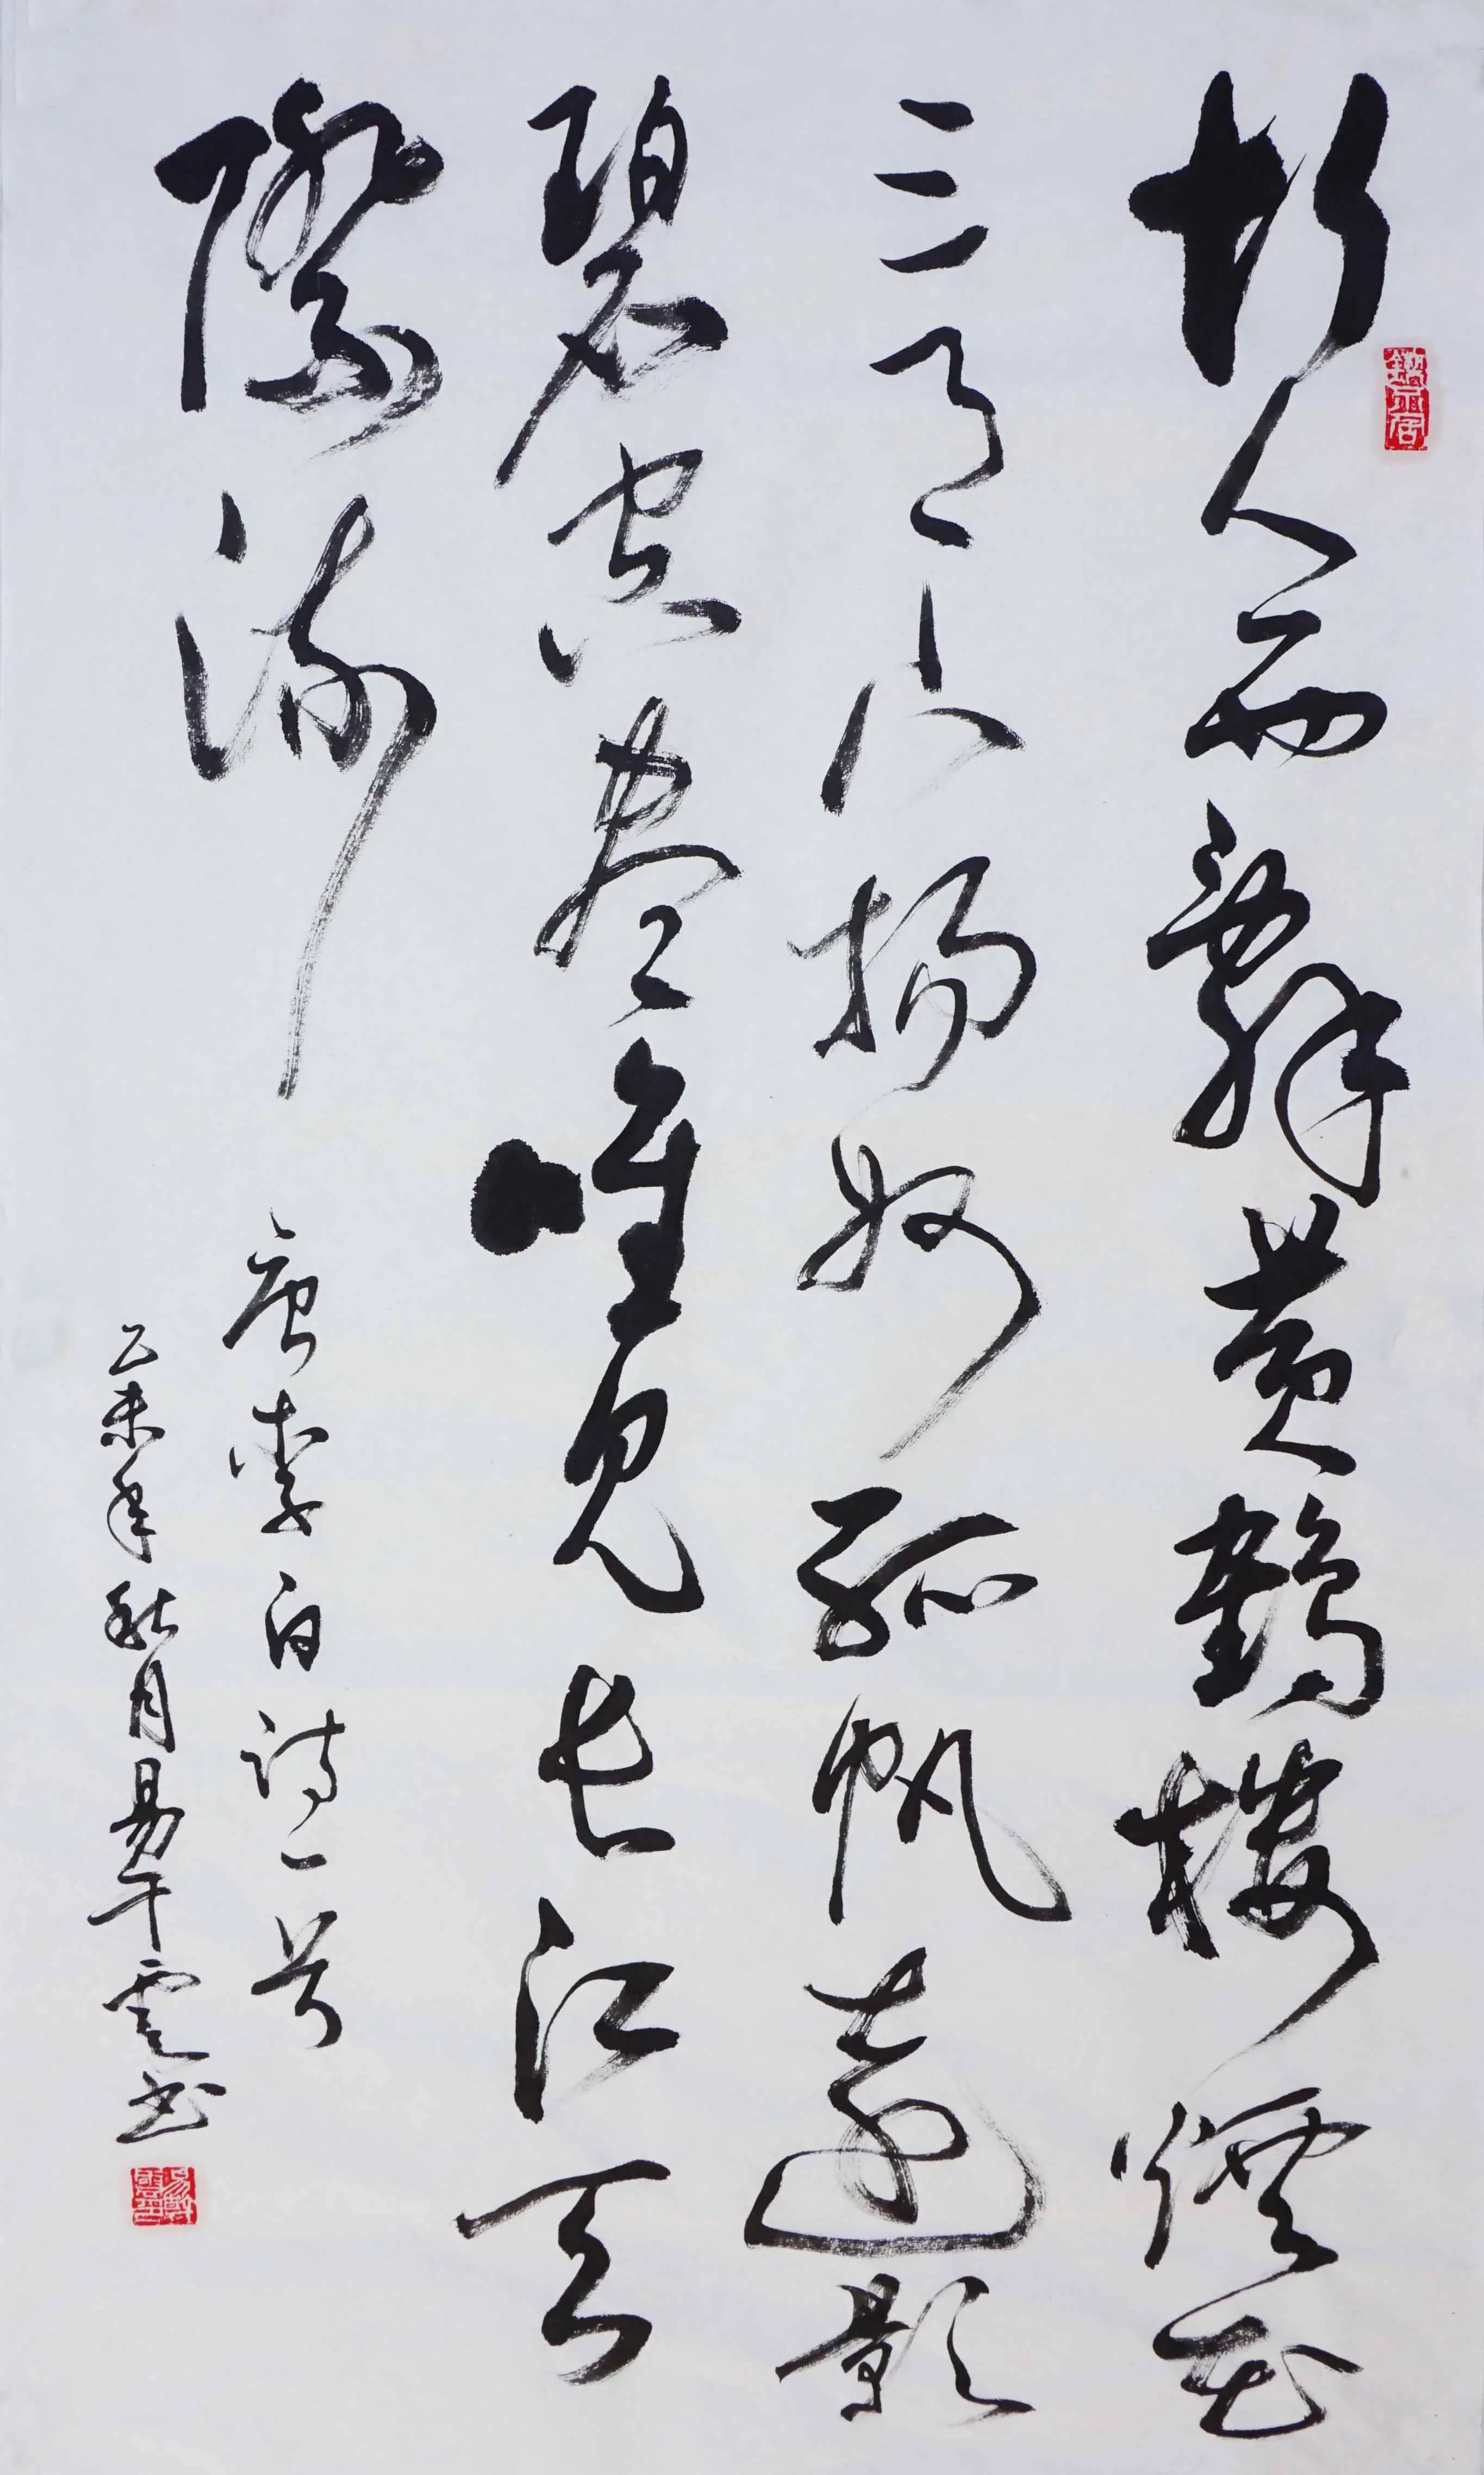 故人西辭黃鶴樓煙花
三月下揚州孤帆遠影
碧空盡唯見長江天
際流
唐李白詩一首
乙未年秋月易干雲书